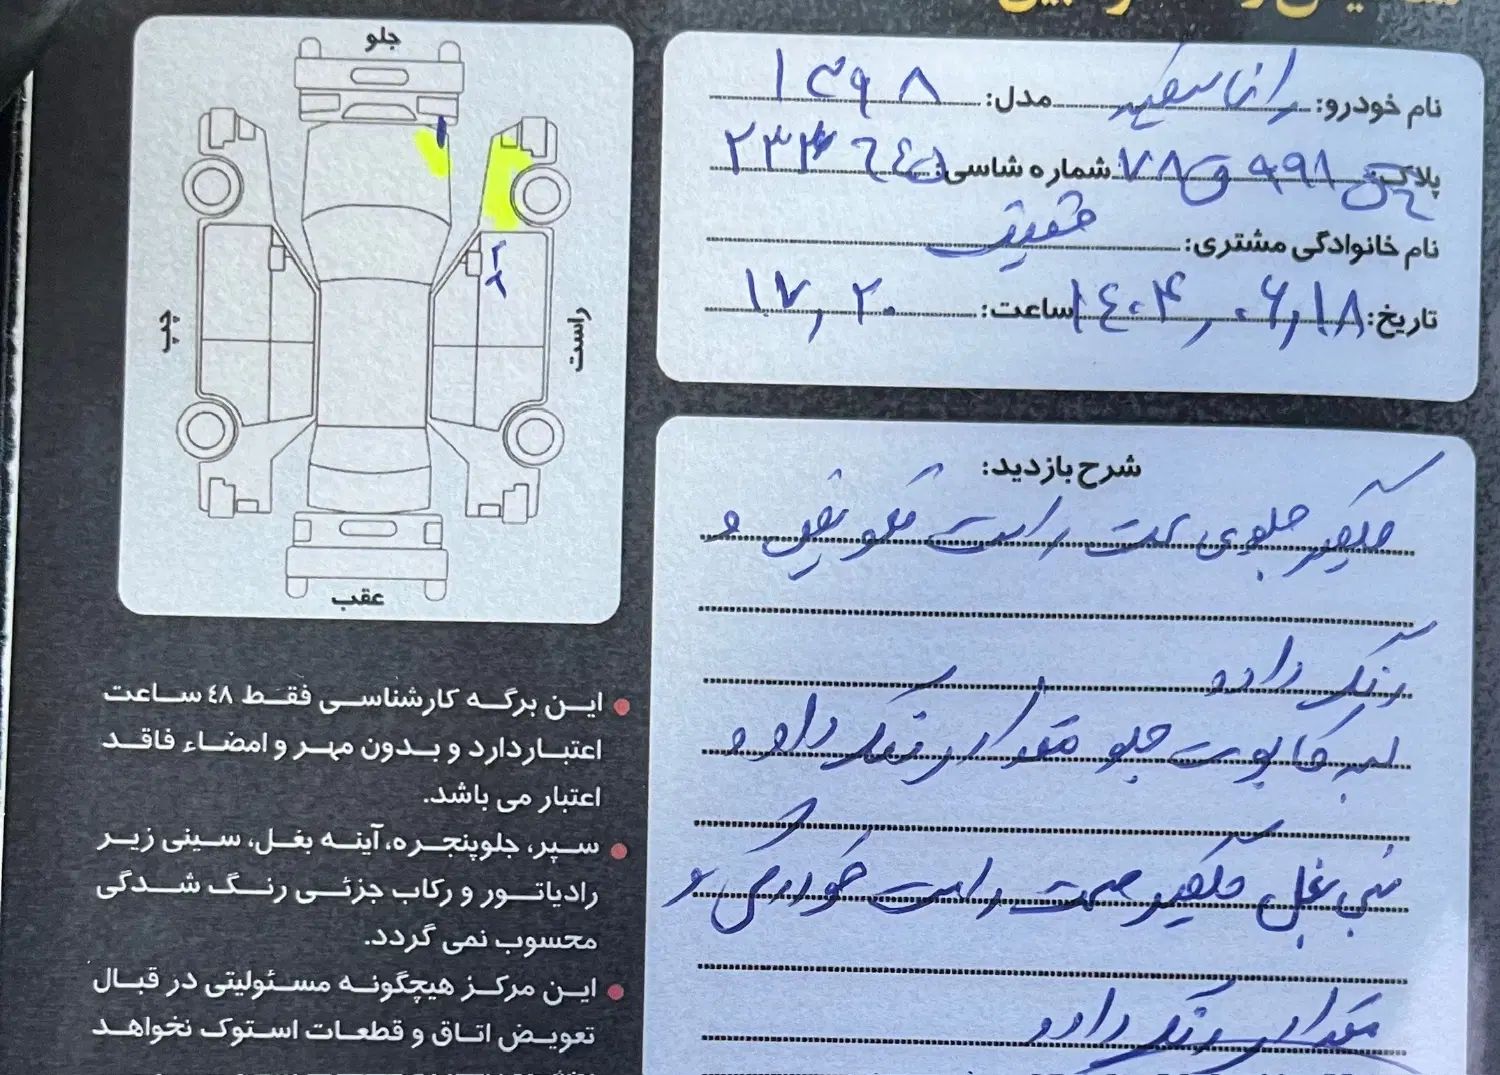 نام خودرو: رانا سفید مدل: ۱۳۹۸
پلاک: ۷۸ ق ۹۹۸ شماره شاسی:
نام خانوادگی مشتری:
تاریخ: ۱۴۰۴,۰۶,۱۸ ساعت: ۱۷,۲۰
جلو
چپ
راست
عقب
شرح بازدید:
گلگیر جلوی سمت راست تعویض و
رنگ دارد
لبه کاپوت جلو مقدار رنگ دارد و
سینی بغل گلگیر سمت راست خوردگی و
مقدار رنگ دارد
این برگه کارشناسی فقط ۴۸ ساعت
اعتبار دارد و بدون مهر و امضاء فاقد
اعتبار می باشد.
سپر، جلوپنجره، آینه بغل، سینی زیر
رادیاتور و رکاب جزئی رنگ شدگی
محسوب نمی گردد.
این مرکز هیچگونه مسئولیتی در قبال
تعویض اتاق و قطعات استوک نخواهد